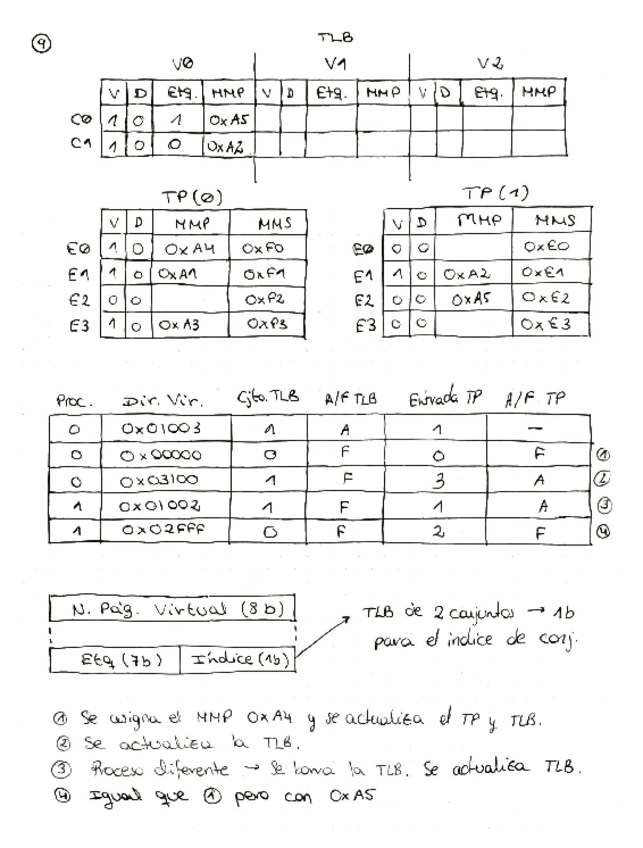 9
TLB
VØ V1 V2
V D Etq. MMP V D Etq. MMP V D Etq. MMP
CØ 1 0 1 0xA5
C1 1 0 0 0xA2
TP(Ø) TP(1)
V D MMP MMS V D MMP MMS
EØ 1 0 0xA4 0xF0 EØ 0 0 0xE0
E1 1 0 0xA1 0xF1 E1 1 0 0xA2 0xE1
E2 0 0 0xF2 E2 0 0 0xA5 0xE2
E3 1 0 0xA3 0xF3 E3 0 0 0xE3
Proc. Dir. Vir. Cjto. TLB A/F TLB Entrada TP A/F TP
0 0x01003 1 A 1 —
0 0x00000 0 F 0 F ①
0 0x03100 1 F 3 A ②
1 0x01002 1 F 1 A ③
1 0x02FFF 0 F 2 F ④
N. Pág. Virtual (8b)
TLB de 2 conjuntos → 1b
para el índice de conj.
Etq (7b) Índice (1b)
① Se asigna el MMP 0xA4 y se actualiza el TP y TLB.
② Se actualiza la TLB.
③ Proceso diferente → Se borra la TLB. Se actualiza TLB.
④ Igual que ① pero con 0xA5